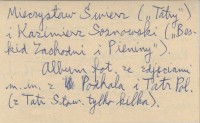 Mieczysław Świerz („Tatry")
i Kazimierz Sosnowski („Bes-
kid Zachodni i Pieniny").
Album fot. ze zdjęciami
m.in. z Podhala i Tatr Pol.
(z Tatr Słow. tylko kilka).